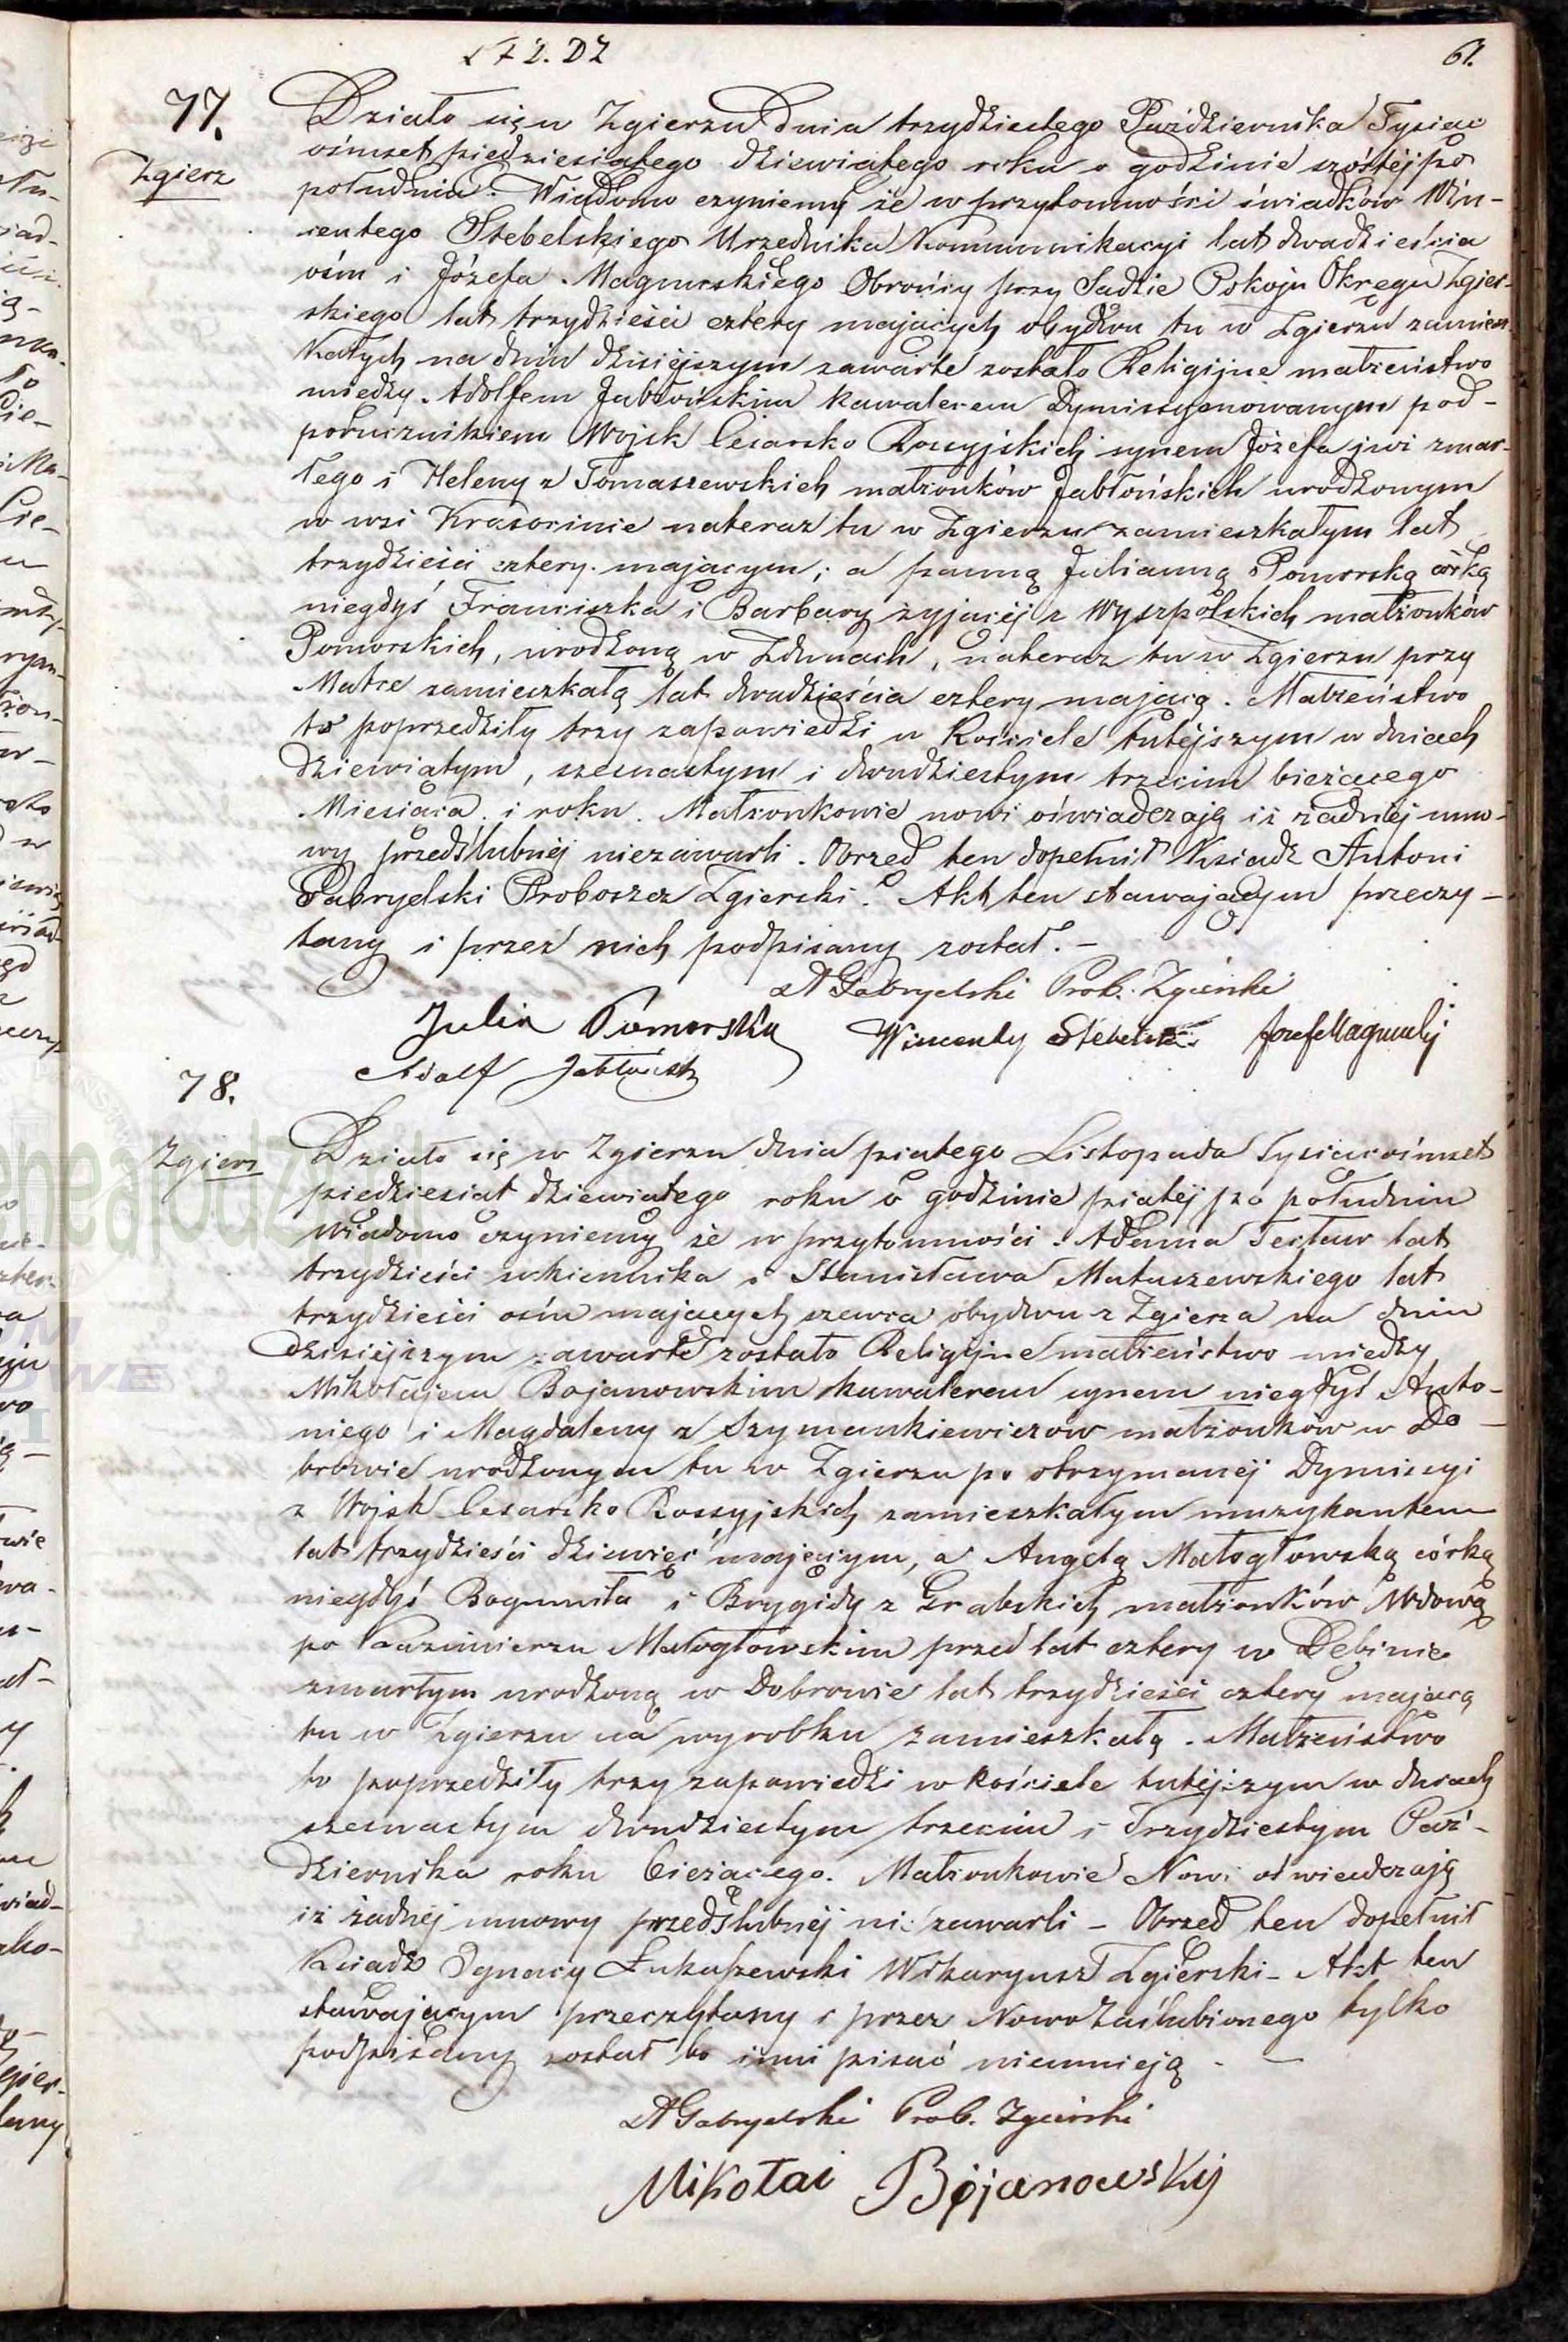 61.
77.
Zgierz
Działo się w Zgierzu dnia trzydziestego Października Tysiąc
ośmset piędziesiątego dziewiątego roku o godzinie szóstéj po
południu. Wiadomo czyniemy że w przytomności świadków Win-
centego Stebelskiego Urzędnika Kommunikacyi lat dwadzieścia
ośm i Józefa Magnuskiego Obrońcy przy Sądzie Pokoju Okręgu Zgier-
skiego lat trzydzieści cztery mających obydwu tu w Zgierzu zamiesz-
kałych na dniu dzisiéjszym zawarte zostało Religijne małżeństwo
między Adolfem Jabłońskim kawalerem Dymissyonowanym pod-
porucznikiem Wojsk Cesarsko Rossyjskich synem Józefa już zmar-
łego i Heleny z Tomaszewskich małżonków Jabłońskich urodzonym
w wsi Krasocinie nateraz tu w Zgierzu zamieszkałym lat
trzydzieści cztery mającym; a panną Julianną Pomorską córką
niegdyś Franciszka i Barbary żyjącéj z Wyszpolskich małżonków
Pomorskich, urodzoną w Zdunach, nateraz tu w Zgierzu przy
Matce zamieszkałą lat dwadzieścia cztery mającą. Małżeństwo
to poprzedziły trzy zapowiedzi w Kościele tutéjszym w dniach
dziewiątym, szesnastym i dwudziestym trzecim bieżącego
Miesiąca i roku. Małżonkowie nowi oświadczają iż żadnéj umo-
wy przedślubnéj niezawarli. Obrzęd ten dopełnił Ksiądz Antoni
Gabryelski Proboszcz Zgierski. Akt ten stawającym przeczy-
tany i przez nich podpisany został. -
A Gabryelski Prob. Zgierski
Julia Pomorska Wincenty Stebelski Jozef Magnuskj
Adolf Jabłoński
78.
Zgierz
Działo się w Zgierzu dnia piątego Listopada Tysiąc ośmset
piedziesiąt dziewiątego roku o godzinie piątéj po południu
Wiadomo czyniemy że w przytomności Adama lat
trzydzieści sukiennika i Stanisława Matuszewskiego lat
trzydzieści ośm mających szewca obydwu z Zgierza na dniu
dzisiéjszym zawarte zostało Religijne małżeństwo między
Mikołajem Bojanowskim kawalerem synem niegdyś Anto-
niego i Magdaleny z Szymankiewiczów małżonków w Do-
browie urodzonym tu w Zgierzu po otrzymanéj Dymissyi
z Wojsk Cesarsko Rossyjskich zamieszkałym muzykantem
lat trzydzieści dziewięć mającym, a Angelą Małogłowską córką
niegdyś Bogumiła i Brygidy z Grabskich małżonków Wdową
po Kazimierzu Małogłowskim przed lat cztery w Dębinie
zmarłym urodzoną w Dobrowie lat trzydzieści cztery mającą
tu w Zgierzu na wyrobku zamieszkałą. Małżeństwo
to poprzedziły trzy zapowiedzi w Kościele tutéjszym w dniach
szesnastym dwudziestym trzecim i Trzydziestym Paź-
dziernika roku bieżącego. Małżonkowie Nowi oświadczają
iż żadnéj umowy przedślubnéj nie zawarli - Obrzęd ten dopełnił
Ksiądz Ignacy Łukaszewski Wikaryusz Zgierski - Akt ten
stawającym przeczytany i przez Nowo Zaślubionego tylko
podpisany został bo inni pisać nieumnieją -
A Gabryelski Prob. Zgierski
Mikołai Bojanowskij